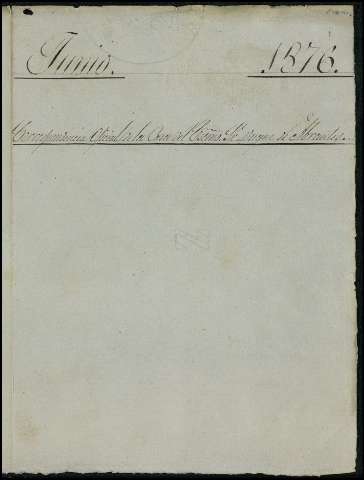 Junio. 1876.
Correspondencia Oficial de la Casa del Excmo. Sr. Duque de Abrantes.